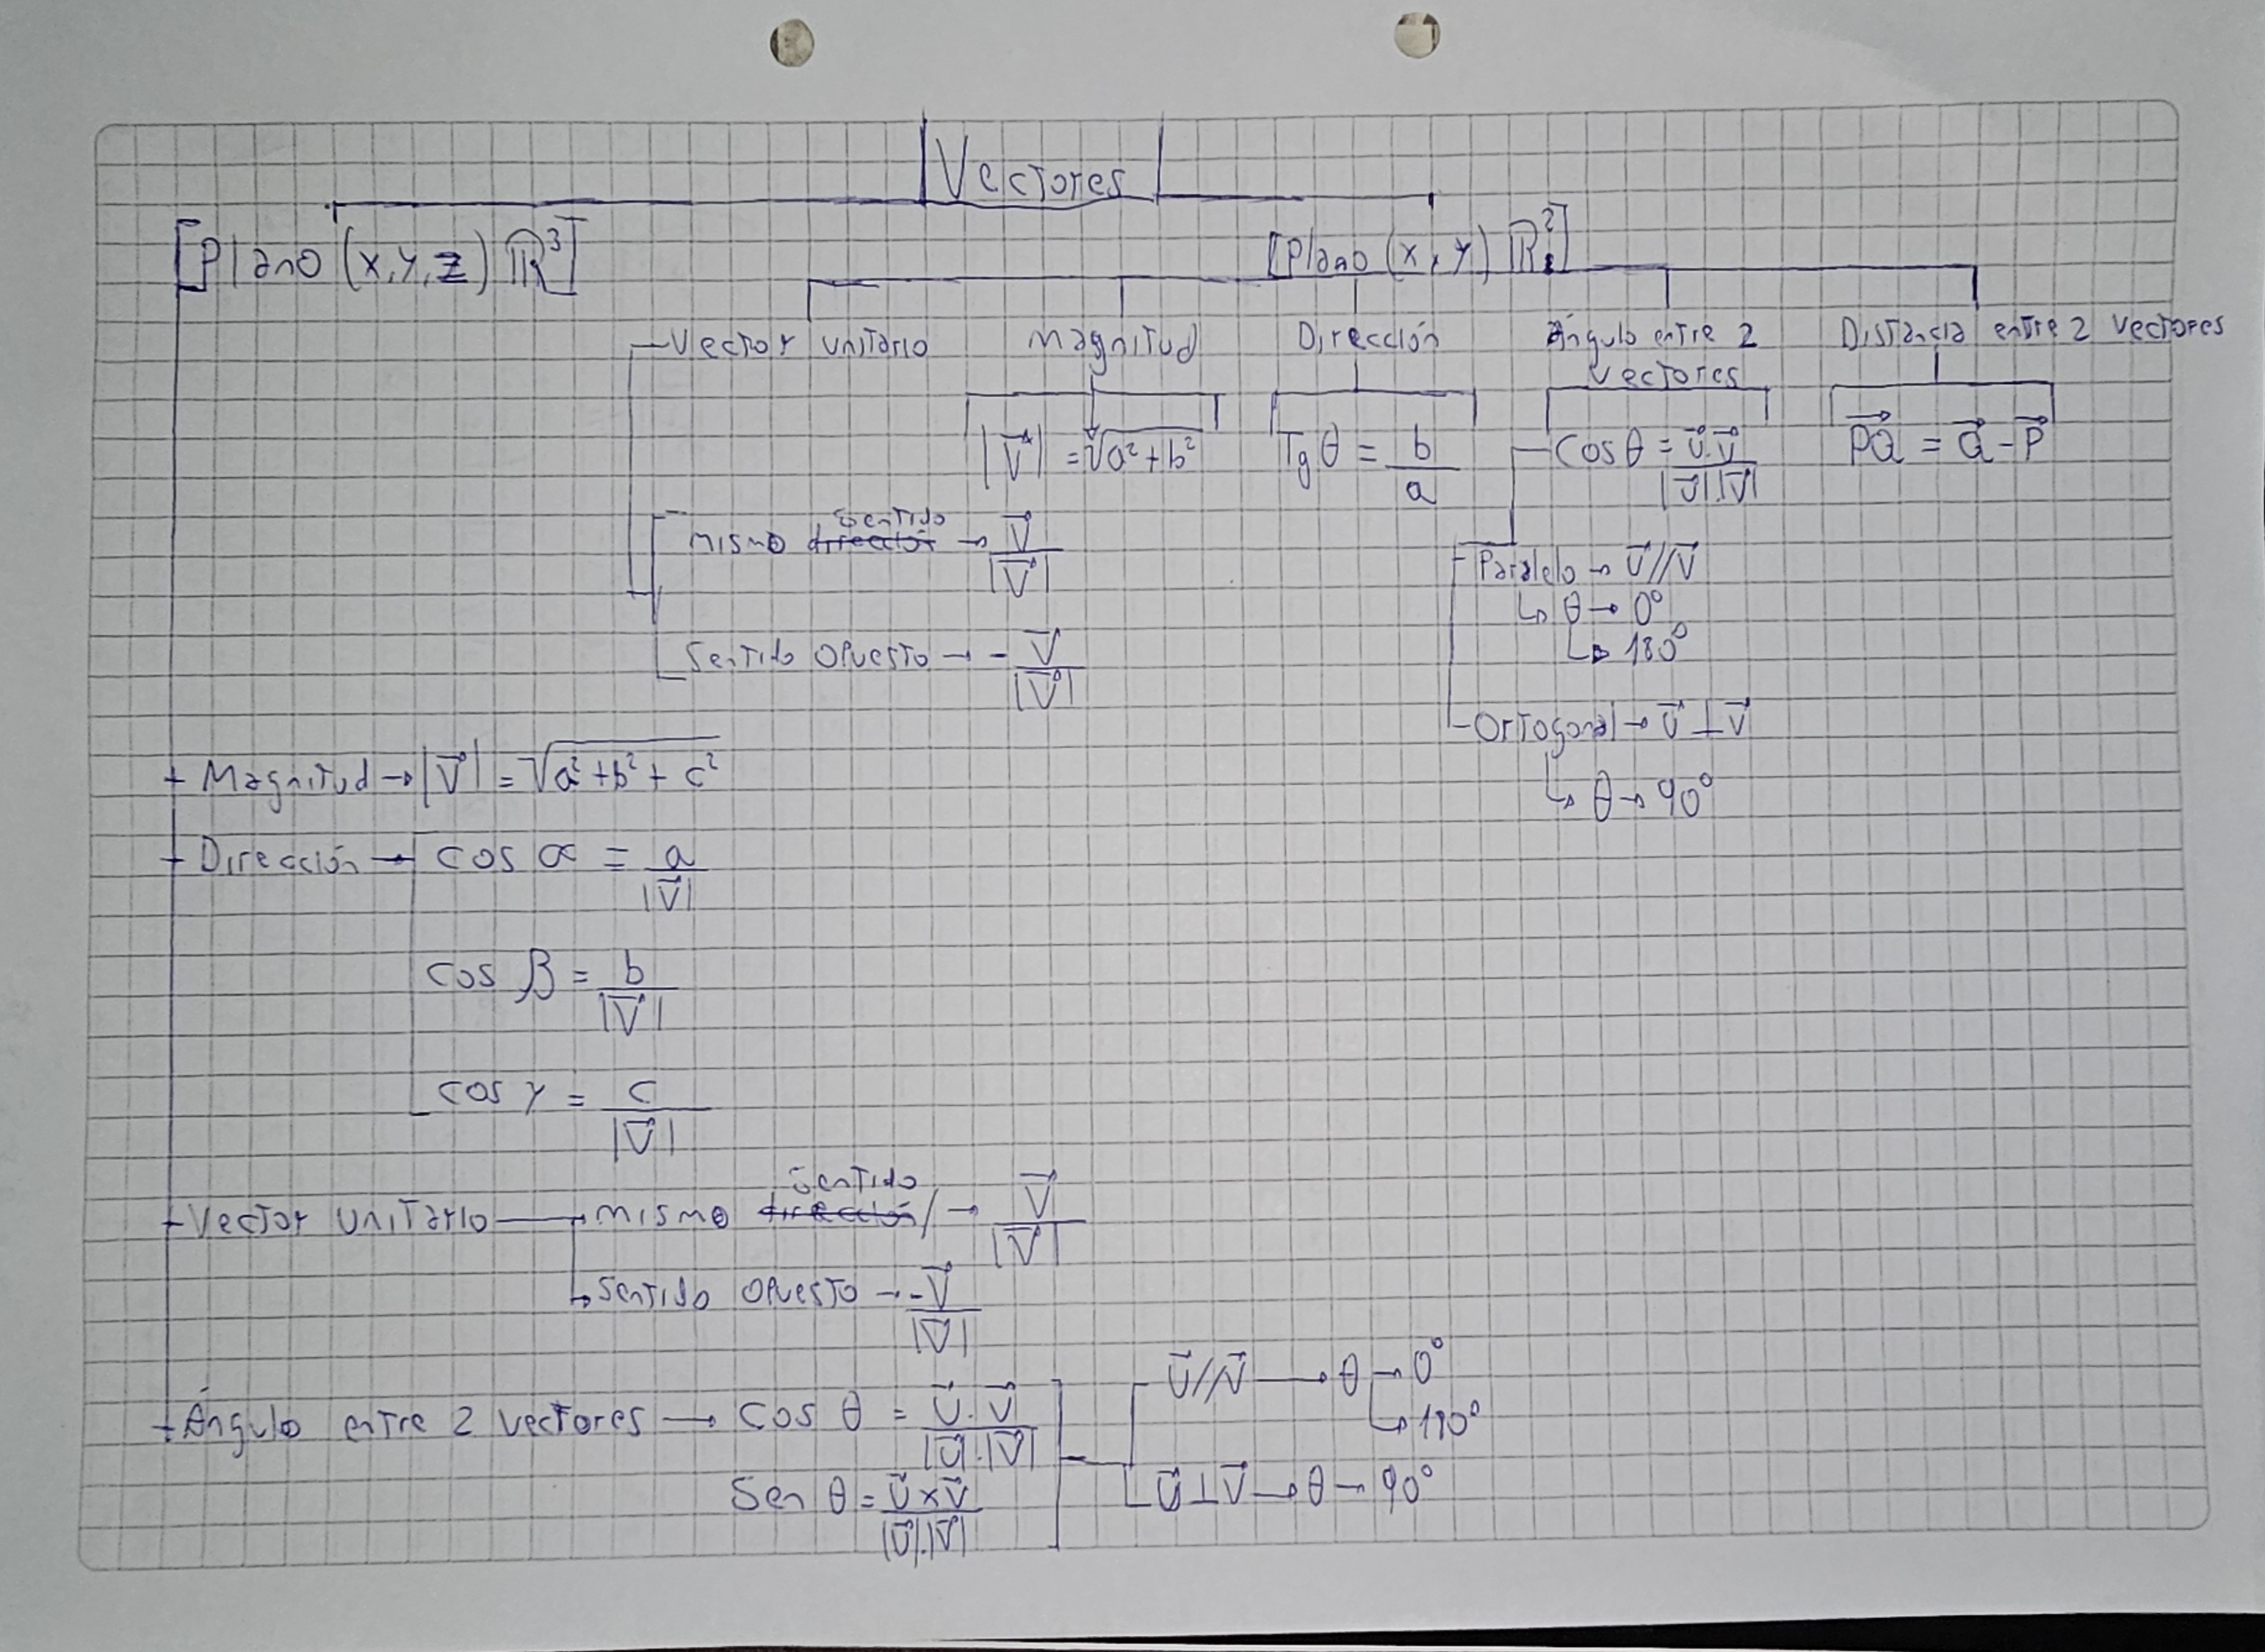 Vectores
[Plano (x,y,z) ℝ³]
[Plano (x,y) ℝ²]
Vector unitario
Magnitud
Dirección
Ángulo entre 2
vectores
Distancia entre 2 vectores
|V⃗| = √a²+b²
Tg θ = b/a
Cos θ = u⃗.v⃗/|u⃗|.|v⃗|
PQ⃗ = Q⃗ - P⃗
mismo dirección sentido → V⃗/|V⃗|
Sentido opuesto → - V⃗/|V⃗|
Paralelo → u⃗//v⃗
↳ θ → 0°
↳ 180°
Ortogonal → u⃗ ⊥ v⃗
↳ θ → 90°
Magnitud → |V⃗| = √a²+b²+c²
Dirección → cos α = a/|V⃗|
cos β = b/|V⃗|
cos γ = c/|V⃗|
Vector unitario → mismo dirección sentido / → V⃗/|V⃗|
↳ Sentido opuesto → -V⃗/|V⃗|
Ángulo entre 2 vectores → cos θ = u⃗.v⃗/|u⃗|.|v⃗|
Sen θ = u⃗×v⃗/|u⃗|.|v⃗|
u⃗//v⃗ → θ → 0°
↳ 180°
u⃗⊥v⃗ → θ → 90°